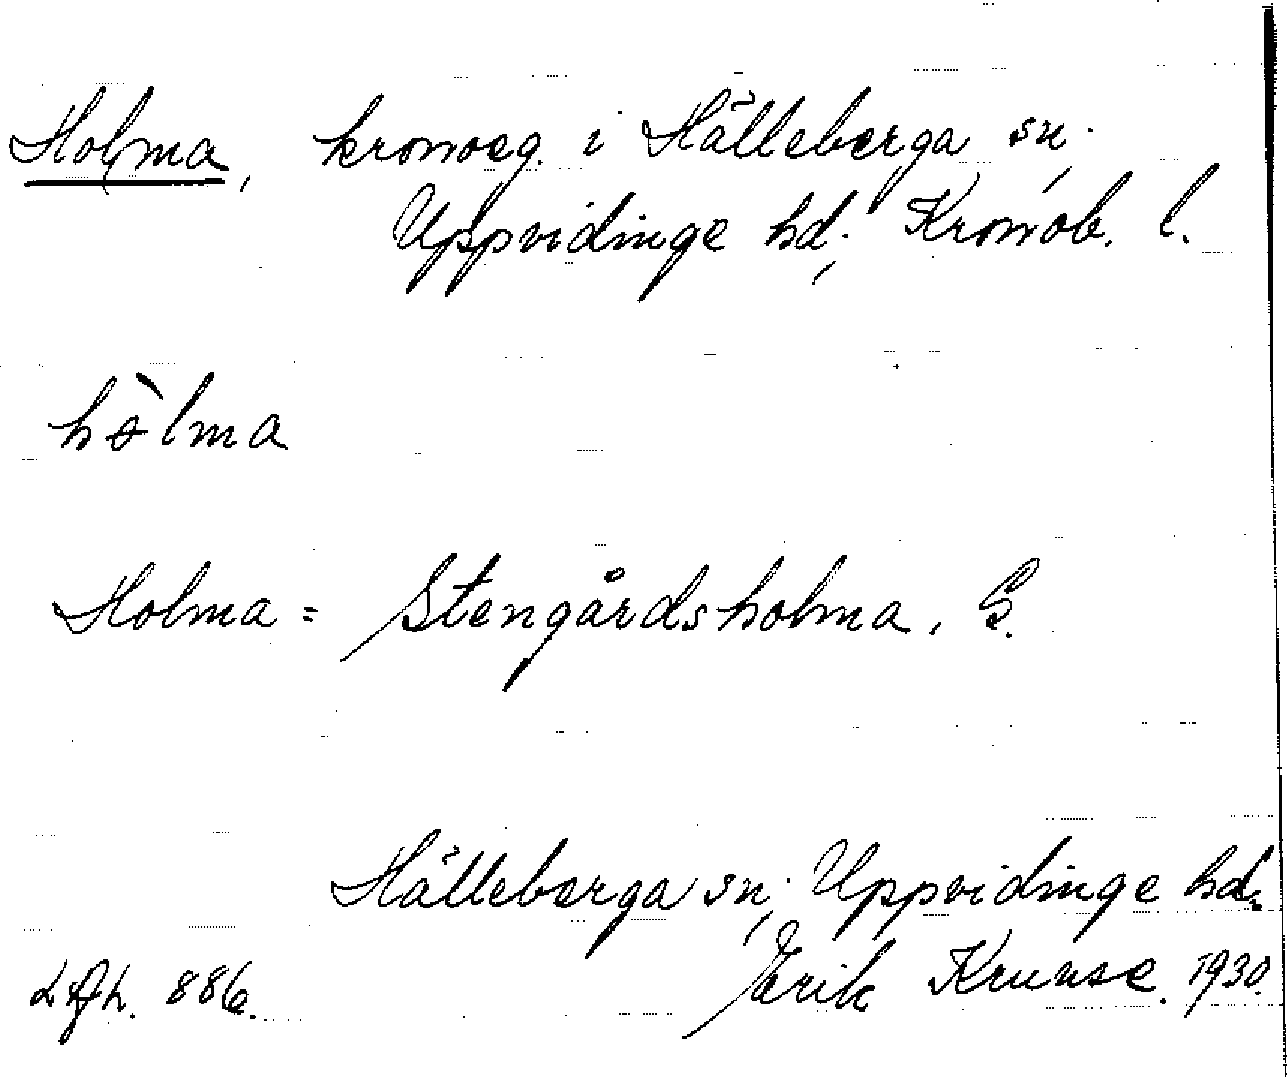 Holma, kronoeg. i Hälleberga sn.,
Uppvidinge hd., Kronob. l.
hòlma
Holma = Stengårdsholma, G.
Hälleberga sn., Uppvidinge hd.
886. Erik Kruuse. 1930.